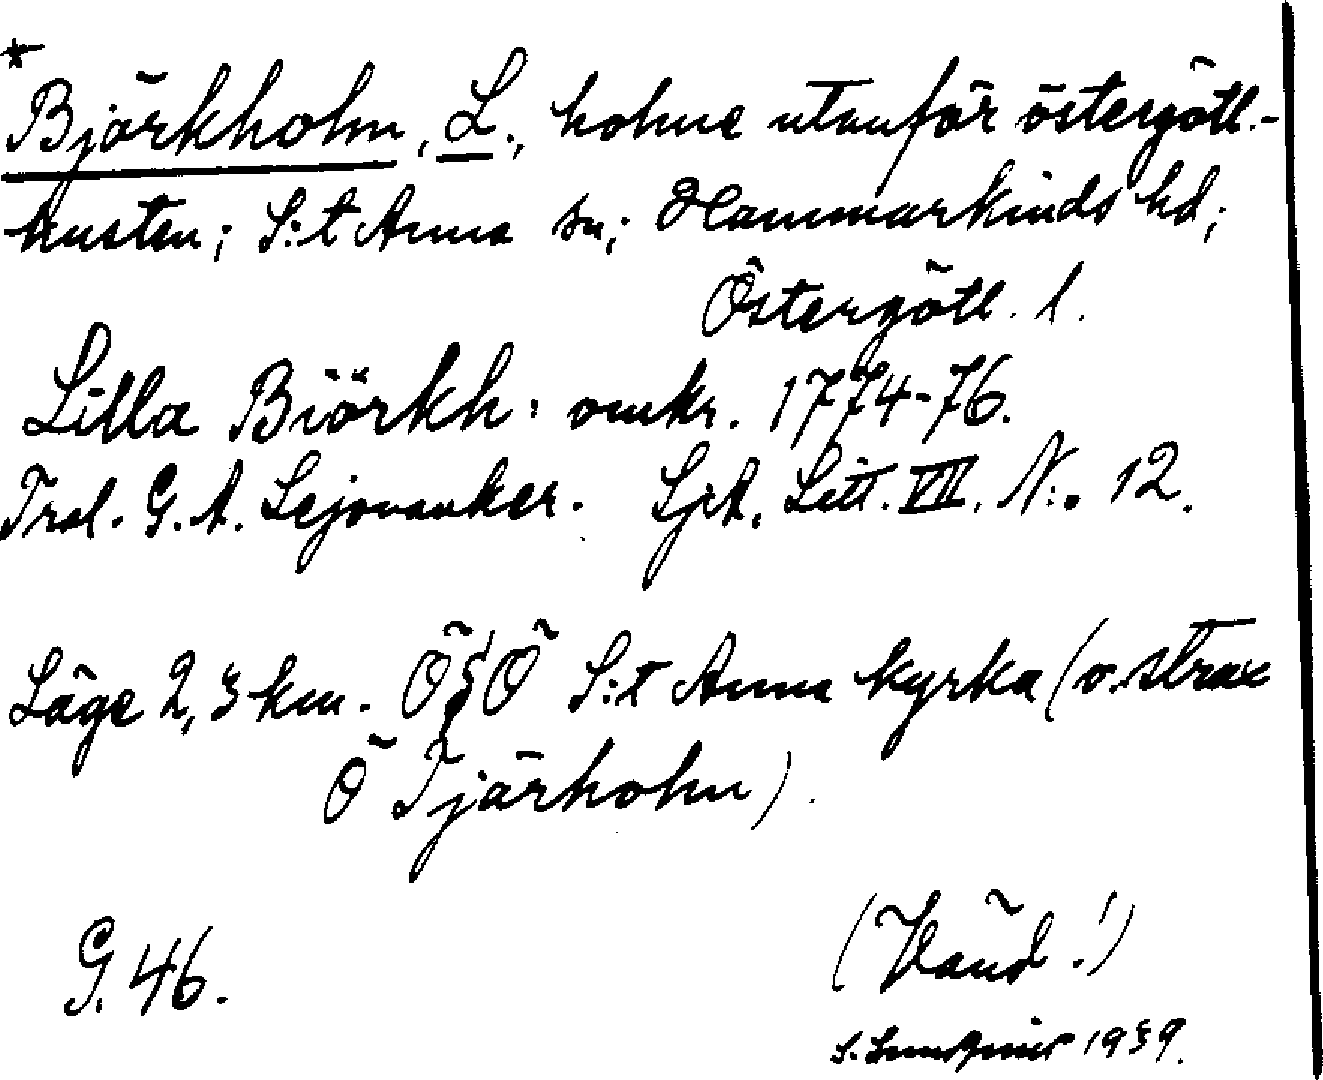 *
Björkholm, L., holme utanför östergötl.-
kusten; S:t Anna sn; Hammarkinds hd;
Östergötl. l.
Lilla Biörkh: omkr. 1774-76.
Trol. G. A. Lejonanker. SjkA. Litt. VIII. N:o 12.
Läge 2,3 km. ÖSÖ S:t Anna kyrka (o. strax
Ö Tjärholm).
G. 46.
(Vänd!)
S. 1939.